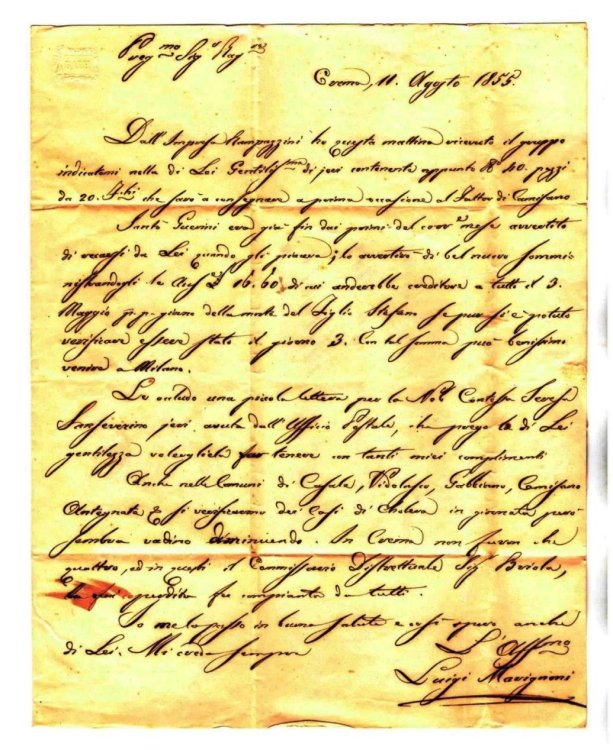 Preg.mo Sig.r Rag.re
Crema, 11. Agosto 1855.
Dall'Impresa Rampazzini ho questa mattina ricevuto il gruppo
indicatomi nella di Lei Gentiliss.ma di jeri contenente appunto N.o 40. pezzi
da 20. che sarò a consegnare a prima occasione al Fattor di Camisano
Santo Guerini era già fin dai primi del corr.e mese avvertito
di recarsi da Lei quando gli piaceva; lo avvertirò di bel nuovo sommi=
nistrandogli le 16.60 di cui anderebbe creditore a tutto il 3.
Maggio p.p. giorno della morte del Figlio Stefano se pur si è potuto
verificare essere stato il giorno 3. Con tal somma può benissimo
venire a Milano.
Le unisco una picola lettera per la Nob. Contessa Teresa
Sanseverino jeri avuta dall'Ufficio Postale, che prego la di Lei
gentilezza volergliela far tenere con tanti miei complimenti
Anche nelle Comuni di Casale, Vidolasco, Gabbiano, Camisano
Antegnate & si verificarono dei Casi di Cholera in giornata però
sembra vadino diminuendo. In Crema non furon che
quattro, ed in questi il Commissario Distrettuale Sig.
La cui perdita fu compianta da tutti.
Io me la passo in buona salute e così spero anche
di Lei. Mi creda sempre
L'Aff.mo
Luigi Marignoni